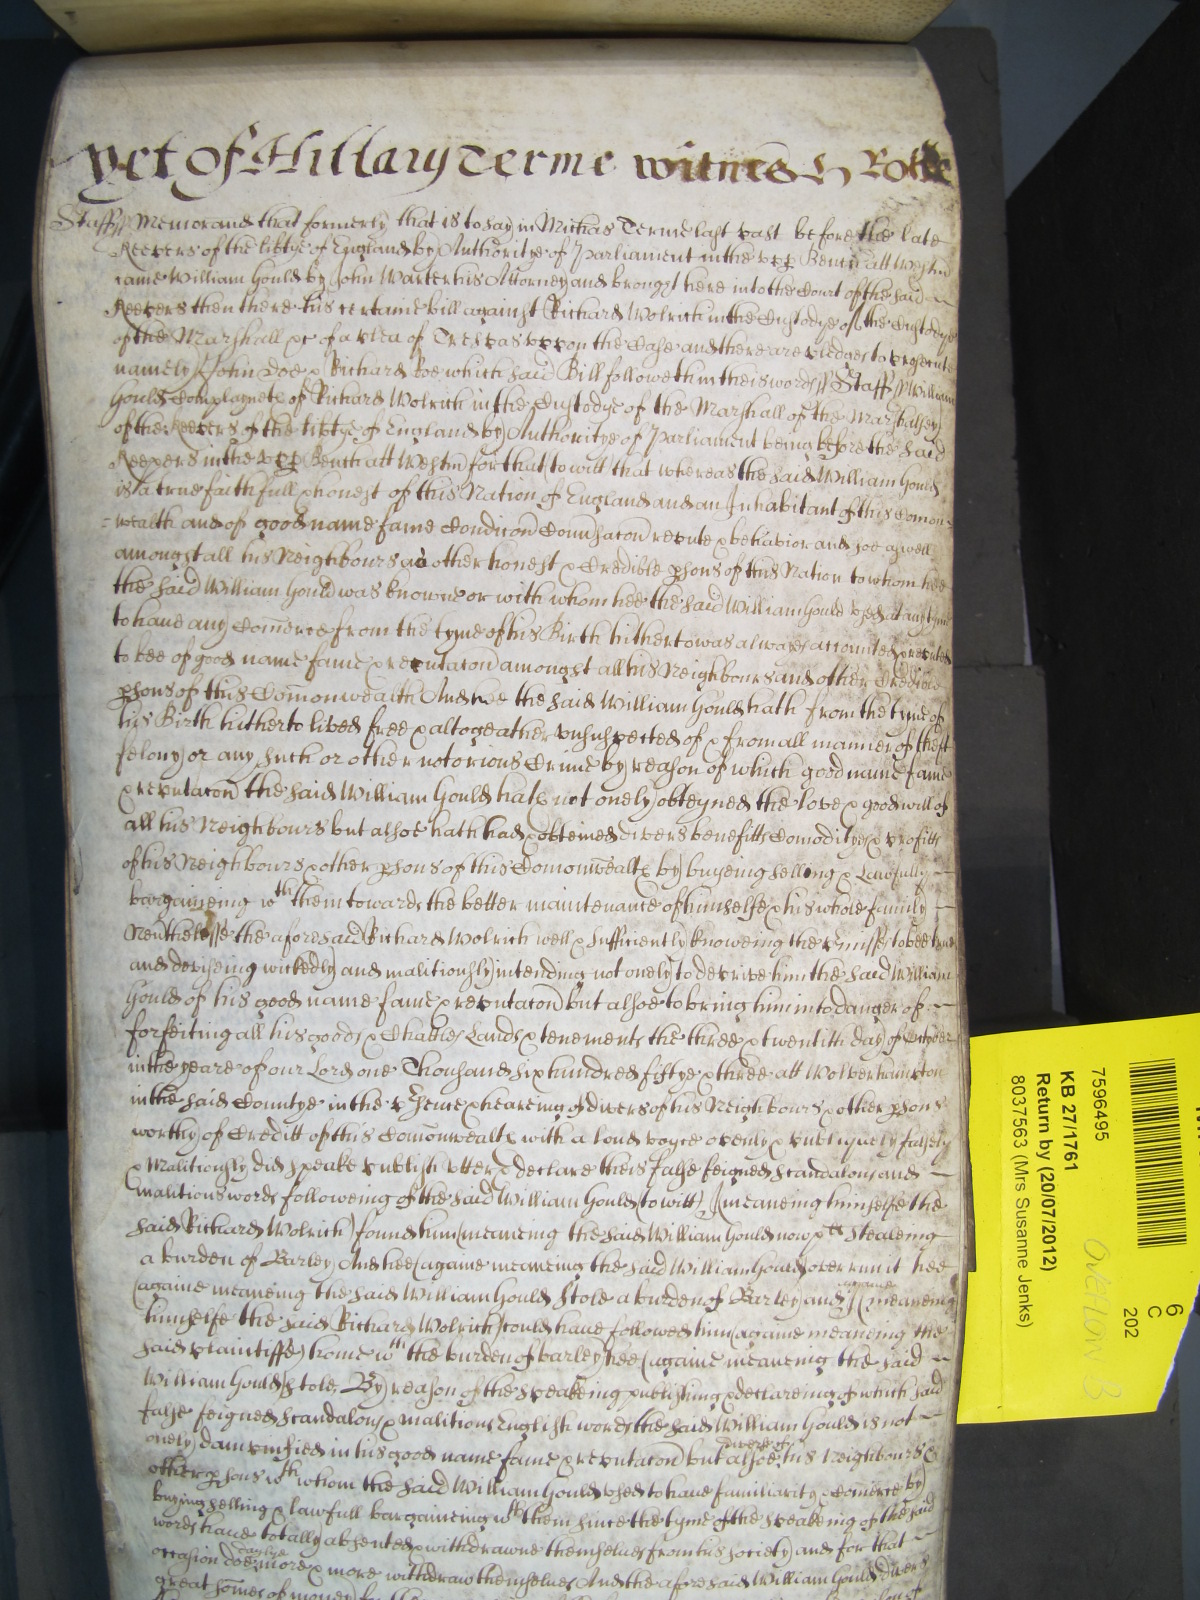 yet of Hillary Terme witnes H Rolle
Staff ss Memorand that formerly that is to say in Michas Terme last past before the late
Keepers of the libtye of England by Authoritye of Parliament in the upp Bench att Westm
came William Gould by John Warter his Attorney and brought here into the Court of the said
Keepers then there his certaine bill against Richard Wolrich in the Custodye of the Custodye
of the Marshall &c of a plea of Trespas uppon the Case and there are pledges to prosecute
namely John Doe & Richard Roe which said Bill followeth in theis words ss Staff ss William
Gould Complaynes of Richard Wolrich in the Custodye of the Marshall of the Marshalsey
of the Keepers of the libtye of England by Authoritye of Parliament being before the said
Keepers in the upp Bench att Westm for that to witt that whereas the said William Gould
is a true faithfull & honest of this Nation of England and an Inhabitant of this Comon
=wealth and of good name fame Condicon Convsacon repute & behavior and soe aswell
amongst all his Neighbours as other honest & Credible psons of this Nation to whom hee
the said William Gould was knowne or with whom hee the said William Gould used at any tyme
to have any Comerce from the tyme of his Birth hitherto was alwaes accounted & reputed
to bee of good name fame & reputacon amongst all his Neighbours and other Credible
psons of this Comonwealth And hee the said William Gould hath from the tyme of
his Birth hitherto lived free & altogeather unsuspected of & from all manner of theft
felony or any such or other notorious Crime by reason of which good name fame
& reputacon the said William Gould hath not onely obteyned the love & good will of
all his Neighbours but alsoe hath had & obteined divers benefitts Comodityes & profitts
of his Neighbours & other psons of this Comonwealth by buyeing selling & Lawfully
bargaineing wth them towards the better maintenance of himselfe & his whole family
Nevtheless the aforesaid Richard Wolrich well & sufficiently knoweing the pmisses to bee true
and deviseing wickedly and malitiously intending not onely to deprive him the said William
Gould of his good name fame & reputacon but alsoe to bring him into danger of
forfeiting all his goods & Chattles Lands & tenements the three & twentith day of October
in the yeare of our Lord one Thousand six hundred fiftye & three att Wolverhampton
in the said Countye in the psence & heareing of divers of his Neighbours & other psons
worthy of Creditt of this Comonwealth with a loud voyce openly & publiquely falsely
& Malitiously did speake publish utter & declare theis false feigned scandalous and
malitious words followeing of the said William Gould (to witt) I (meaneing himselfe the
said Richard Wolrich) found him (meaneing the said William Gould now plt) stealeing
a burden of Barley And hee (againe meaneing the said William Gould) over run it hee
(againe meaneing the said William Gould) stole a burden of Barley and I (againe meaneing
himselfe the said Richard Wolrich) could have followed him (againe meaneing the
said plaintiffe) home wth the burden of barley hee (againe meaneing the said
William Gould) stole. By reason of the speakeing publishing & declareing of which said
false feigned scandalous & malitious English words the said William Gould is not
onely damnified in his good name fame & reputacon but alsoe divers of his Neighbours &
other psons wth whom the said William Gould used to have familiarity & Comerce by
buying selling & lawfull bargaineing wth them since the tyme of the speakeing of the said
words have totally absented & withdrawne themselves from his society and for that
occasion doe daylye more & more withdraw themselves And the aforesaid William Gould divers
great somes of money
7596495
KB 27/1761
Return by (20/07/2012)
8037563 (Mrs Susanne Jenks)
6
C
202